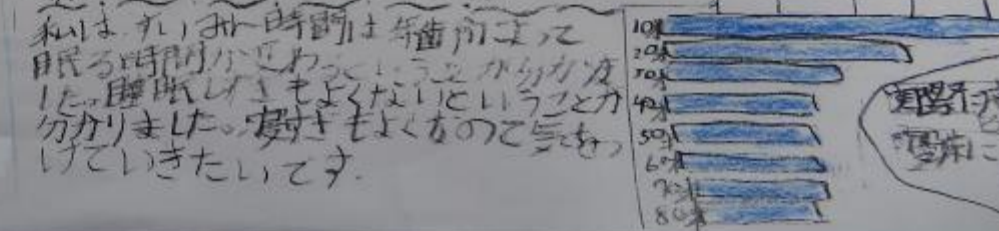 私は、すいみん時間は年齢によって
眠る時間が変わっていうことが分かりま
した。睡眠しすぎもよくないということが
分かりました。寝すぎもよくなので気をつ
けていきたいてす.
10才
20才
30才
40才
50才
60才
70才
80才